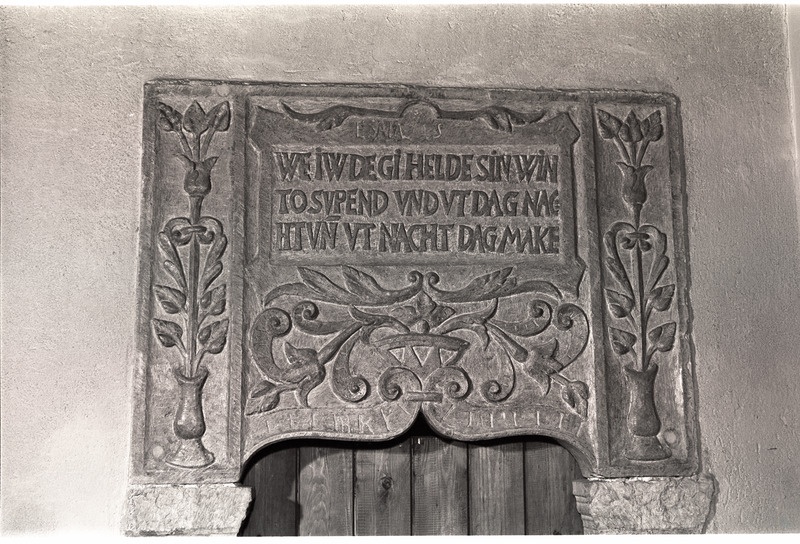 WE iW DE Gi HELDE SiN WiN
TO SVPEND VND VT DAG NAG
HT VÑ VT NACHT DAG MAKE